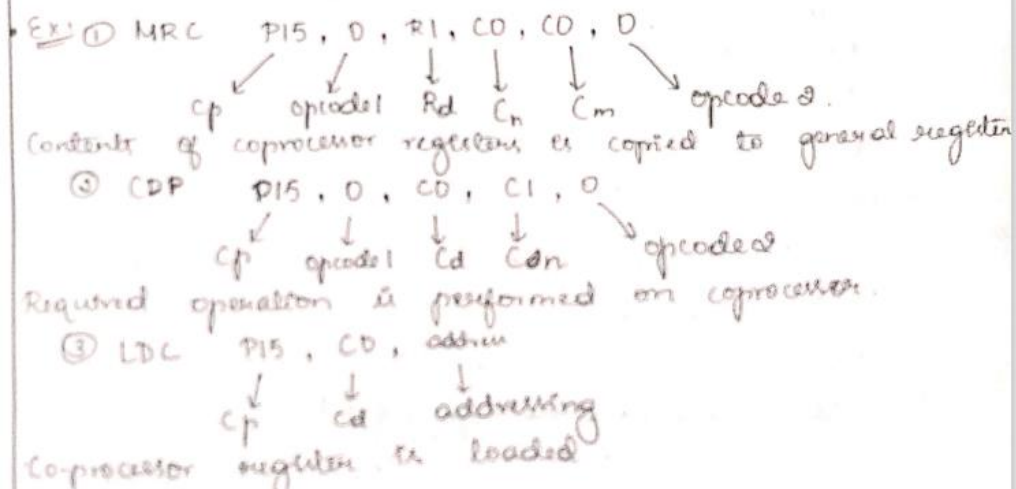 Ex: ① MRC P15, 0, R1, C0, C0, 0
Cp opcode1 Rd Cn Cm opcode2.
Contents of coprocessor registers is copied to general register
② CDP P15, 0, C0, C1, 0
Cp opcode1 Cd Cdn opcode2
Required operation is performed on coprocessor.
③ LDC P15, C0, address
Cp Cd addressing
Co-processor register is loaded